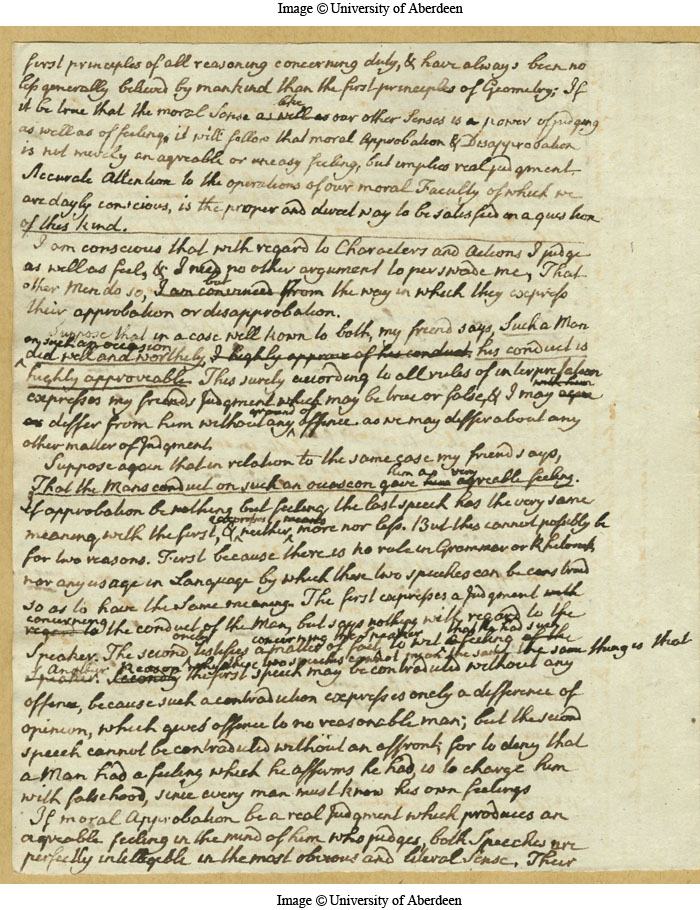 Image © University of Aberdeen
first principles of all reasoning concerning duty, & have always been no
less generally believd by mankind than the first principles of Geometry; If
it be true that the moral Sense as well as like our other Senses is a power of judging
as well as of feeling, it will follow that moral Approbation & Disapprobation
is not merely an agreable or uneasy feeling, but implies real judgment.
Accurate Attention to the operations of our moral Faculty of which we
are dayly conscious, is the proper and direct way to be satisfied in a question
of this kind.
I am conscious that with regard to Characters and Actions I judge
as well as feel, & I need no other argument to perswade me, That
other Men do so, I am convinced but from the way in which they express
their approbation or disapprobation.
Suppose that in a case well known to both, my friend says, Such a Man
on such an occasion
did well and worthily, I highly approve of his conduct. his conduct is
highly approveable. This surely according to all rules of interpretation
expresses my friends Judgment which may be true or false, & I may agree with him
or differ from him without any ground of offence as we may differ about any
other matter of Judgment.
Suppose again that in relation to the same case my friend says,
That the Mans conduct on such an occasion gave him a very agreable feeling.
If approbation be nothing but feeling the last speech has the very same
meaning with the first, & expresses neither more nor less. But this cannot possibly be
for two reasons. First because there is no rule in Grammar or Rhetorick,
nor any usage in Language by which these two speeches can be construd
so as to have the same meaning. The first expresses a Judgment with
concerning
regard to the conduct of the Man, but says nothing with regard to the
Speaker. The second onely testifies a matter of fact concerning the speaker to wit that he had such a feeling
Another Reason why these two speeches cannot mean the same the same thing is that
Secondly the first speech may be contradicted without any
offence, because such a contradiction expresses onely a difference of
opinion, which gives offence to no reasonable man; but the second
speech cannot be contradicted without an affront; for to deny that
a Man had a feeling which he affirms he had, is to charge him
with falsehood, since every man must know his own feelings
If moral Approbation be a real Judgment which produces an
agreable feeling in the mind of him who judges, both Speeches are
perfectly intelligible in the most obvious and literal Sense. Their
Image © University of Aberdeen